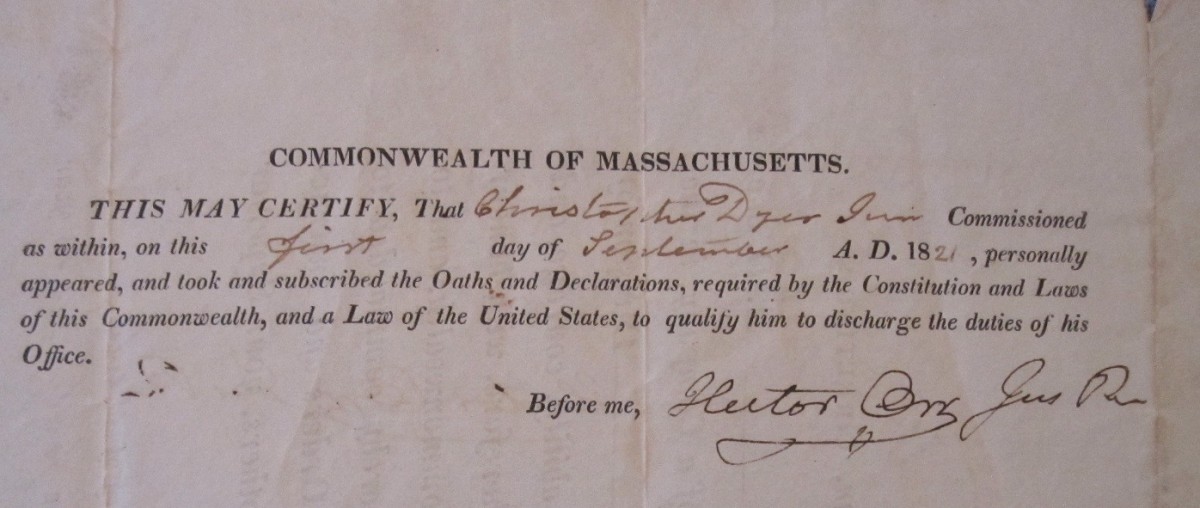 COMMONWEALTH OF MASSACHUSETTS.
THIS MAY CERTIFY, That Christopher Dyer Jun Commissioned
as within, on this first day of September A. D. 1821, personally
appeared, and took and subscribed the Oaths and Declarations, required by the Constitution and Laws
of this Commonwealth, and a Law of the United States, to qualify him to discharge the duties of his
Office.
Before me, Hector Orr Jus Pa